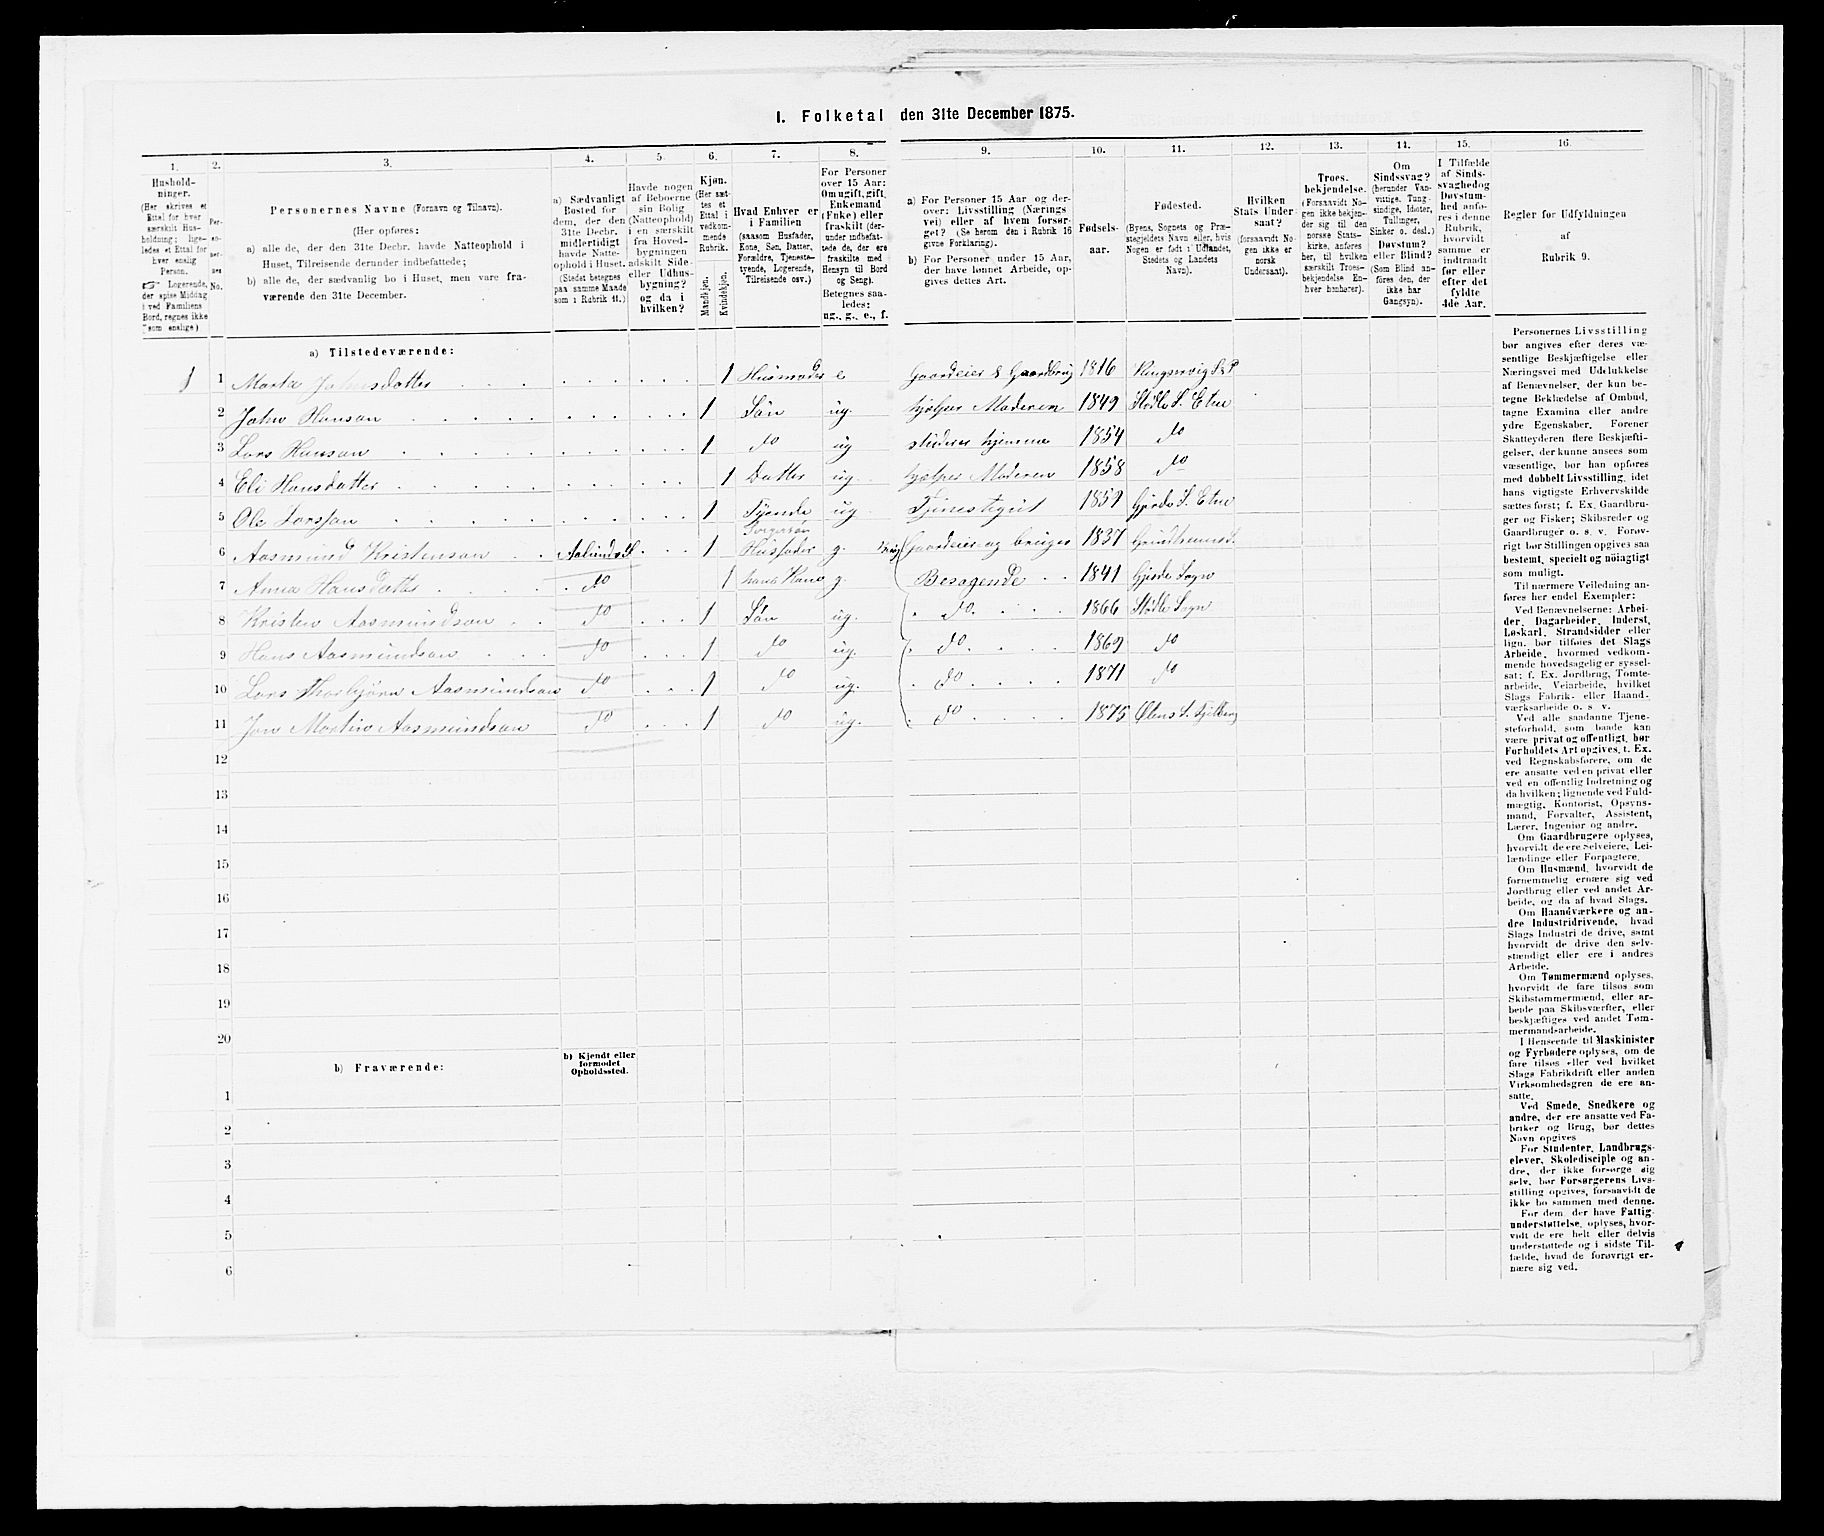 I. Folketal den 31te December 1875.
1. 2. 3. 4. 5. 6. 7. 8. 9. 10. 11. 12. 13. 14. 15. 16.
Hushold-
ninger.
(Her skrives et
Ettal for hver
særskilt Hus-
holdning; lige-
ledes et Ettal for
hver enslig
Person.
☞ Logerende,
der spise Middag
i ved Familiens
Bord, regnes ikke
som enslige)
No.
Personernes Navne (Fornavn og Tilnavn).
(Her opføres:
a) alle de, der den 31te Decbr. havde Natteophold i
Huset, Tilreisende derunder indbefattede;
b) alle de, der sædvanlig bo i Huset, men vare fra-
værende den 31te December.
a) Sædvanligt
Bosted for
dem, der den
31te Decbr.
midlertidigt
havde Natte-
ophold i Huset.
(Stedet betegnes
paa samme Maade
som i Rubrik 11.)
Havde nogen
af Beboerne
sin Bolig
(Natteophold)
i en særskilt
fra Hoved-
bygningen
adskilt Side-
eller Udhus-
bygning?
og da i
hvilken?
Kjøn.
(Her sæt-
tes et
Ettal i
vedkom-
mende
Rubrik.
Mandkjøn.
Kvindekjøn.
Hvad Enhver er
i Familien
(saasom Husfader,
Kone, Søn, Datter,
Forældre, Tjeneste-
tyende, Logerende,
Tilreisende osv.)
For Personer
over 15 Aar:
Om ugift, gift,
Enkemand
(Enke) eller
fraskilt (der-
under indbefat-
tede de, der ere
fraskilte med
Hensyn til Bord
og Seng).
Betegnes saa-
ledes:
ug., g., e., f.
a) For Personer 15 Aar og der-
over: Livsstilling (Nærings-
vei) eller af hvem forsør-
get? (Se herom den i Rubrik 16
givne Forklaring).
b) For Personer under 15 Aar,
der have lønnet Arbeide, op-
gives dettes Art.
Fødsels-
aar.
Fødested.
(Byens, Sognets og Præ-
stegjeldets Navn eller, hvis
Nogen er født i Udlandet,
Stedets og Landets
Navn).
Hvilken
Stats Under-
saat?
(forsaavidt No-
gen ikke er
norsk
Undersaat).
Troes-
bekjendelse.
(Forsaavidt No-
gen ikke bekjen-
der sig til den
norske Stats-
kirke, anføres
her, til hvilken
særskilt Troes-
bekjendelse En-
hver henhører).
Om
Sindssvag?
(herunder Van-
vittige, Tung-
sindige, Idioter,
Tullinger,
Sinker o. desl.)
Døvstum?
eller Blind?
(Som Blind an-
føres den, der
ikke har
Gangsyn).
I Tilfælde
af Sinds-
svaghedog
Døvstum-
hed anfø-
res i denne
Rubrik,
hvorvidt
samme er
indtraadt
før eller
efter det
fyldte
4de Aar.
Regler for Udfyldningen
af
Rubrik 9.
a) Tilstedeværende:
1 1 Marta Johnsdatter 1 Husmoder e Gaardeier & Gaardbrug 1816
2 John Hanson 1 Søn ug. hjelper Moderen 1849 Stødle S. Etne
3 Lars Hanson 1 do ug hjemme 1854 do
4 Eli Hansdatter 1 Datter ug. hjelper Moderen 1858 do
5 Ole Larsson 1 Tyende ug. Tjenestegut 1859 Gjerde S. Etne
6 Aasmund Kristenson 1 Husfader g. Gaardeier og bruger 1837
7 Anna Hansdatter do 1 hans Kone g. Besøgende 1841 Gjerde Sogn
8 Kristen Aasmundson do 1 Søn ug. do. 1866 Stødle Sogn
9 Hans Aasmundson do 1 do ug. do. 1869 do
10 Lars Thorbjørn Aasmundson do 1 do ug. do 1871 do
11 Jon Martin Aasmundson do 1 do ug. do 1875
12
13
14
15
16
17
18
19
20
b) Fraværende:
b) Kjendt eller
formodet
Opholdssted.
1
2
3
4
5
6
Personernes Livsstilling
bør angives efter deres væ-
sentlige Beskjæftigelse eller
Næringsvei med Udelukkelse
af Benævnelser, der kun be-
tegne Beklædelse af Ombud,
tagne Examina eller andre
ydre Egenskaber. Forener
Skatteyderen flere Beskjæfti-
gelser, der kunne ansees som
væsentlige, bør han opføres
med dobbelt Livsstilling, idet
hans vigtigste Erhvervskilde
sættes først; f. Ex. Gaardbru-
ger og Fisker; Skibsreder og
Gaardbruger o. s. v. Forøv-
rigt bør Stillingen opgives saa
bestemt, specielt og nøiagtigt
som muligt.
Til nærmere Veiledning an-
føres her endel Exempler:
Ved Benævnelserne: Arbei-
der, Dagarbeider, Inderst,
Løskarl, Strandsidder eller
lign. bør tilføies det Slags
Arbeide, hvormed vedkom-
mende hovedsagelig er syssel-
sat; f. Ex. Jordbrug, Tomte-
arbeide, Veiarbeide, hvilket
Slags Fabrik- eller Haand-
værksarbeide o. s. v.
Ved alle saadanne Tjene-
steforhold, som baade kan
være privat og offentligt, bør
Forholdets Art opgives, t. Ex.
ved Regnskabsførere, om de
ere ansatte ved en privat eller
ved en offentlig Indretning og
da hvilken; lignende ved Fuld-
mægtig, Kontorist, Opsyns-
mand, Forvalter, Assistent,
Lærer, Ingeniør og andre.
Om Gaardbrugere oplyses,
hvorvidt de ere Selveiere, Lei-
lændinge eller Forpagtere.
Om Husmænd, hvorvidt de
fornemmelig ernære sig ved
Jordbrug eller ved andet Ar-
beide, og da af hvad Slags.
Om Haandværkere og an-
dre Industridrivende, hvad
Slags Industri de drive, samt
hvorvidt de drive den selv-
stændigt eller ere i andres
Arbeide.
Om Tømmermænd oplyses,
hvorvidt de fare tilsøs som
Skibstømmermænd, eller ar-
beide paa Skibsværfter, eller
beskjæftiges ved andet Tøm-
mermandsarbeide.
I Henseende til Maskinister
og Fyrbødere oplyses, om de
fare tilsøs eller ved hvilket
Slags Fabrikdrift eller anden
Virksomhedsgren de ere an-
satte.
Ved Smede, Snedkere og
andre, der ere ansatte ved Fa-
briker og Brug, bør dettes
Navn opgives
For Studenter, Landbrugs-
elever, Skoledisciple og an-
dre, der ikke forsørge sig
selv, bør Forsørgerens Livs-
stilling opgives, forsaavidt de
ikke bo sammen med denne.
For dem, der have Fattig-
understøttelse, oplyses, hvor-
vidt de ere helt eller delvis
understøttede og i sidste Til-
fælde, hvad de forøvrigt er-
nære sig ved.